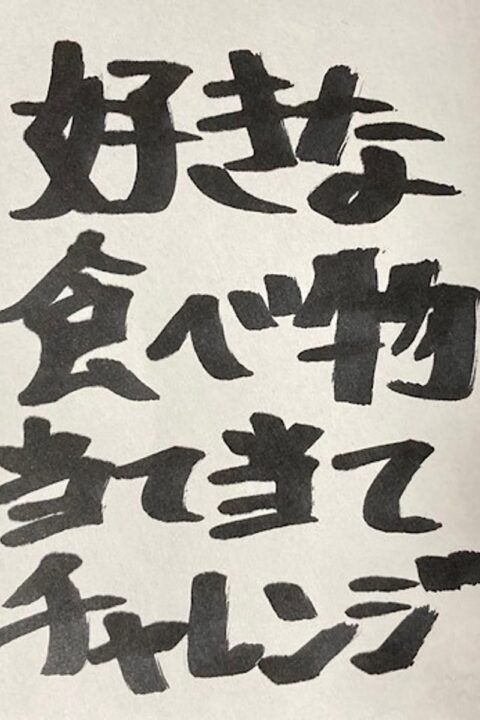 好きな
食べ物
当て当て
チャレンジ